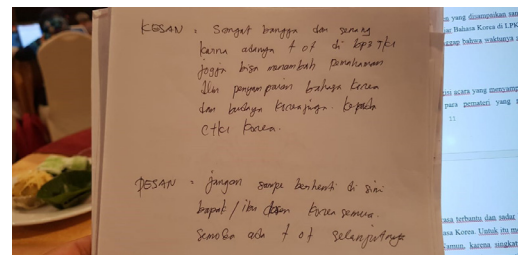 KESAN : Sangat bangga dan senang
karna adanya t o t di bp3 TKI
jogja bisa menambah pemahaman
dlm penyampaian bahasa Korea
dan budaya Korea juga. kepada
ctki Korea.
PESAN : jangan sampe berhenti di sini
bapak / ibu dosen Korea semua.
Semoga ada t o t selanjutnya
n yang disampaikan san
jar Bahasa Korea di LPK
ggap bahwa waktunya s
isi acara yang menyamp
para pemateri yang
11
asa terbantu dan sadar
asa Korea. Untuk itu m
Namun, karena singkat